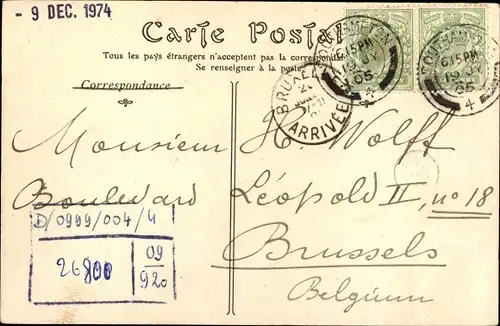 - 9 DEC. 1974
Carte Postale
Tous les pays étrangers n'acceptent pas la correspondance
Se renseigner à la poste
Correspondance
6.15PM
19 JY
05
4
6.15PM
19
05
4
ARRIVÉE
Monsieur H. Wolff
Boulevard Léopold II, no 18
Brussels
Belgium
D/0999/004/4
26800
09
920